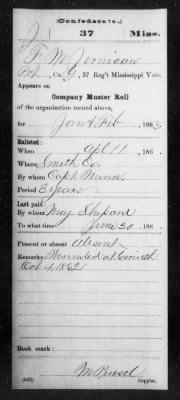 (Confederate.)
J 37 Miss.
F. M. Jimican
Pvt, Co. G, 37 Reg't Mississippi Vols.
Appears on
Company Muster Roll
of the organization named above,
for Jan & Feb, 1863.
Enlisted:
When Apl 11, 186
Where Smith Co.
By whom Capt. Mann
Period 3 years
Last paid:
By whom Maj Shipand
To what time June 30, 186
Present or absent Absent
Remarks: Wounded at Corinth
Oct 4, 1862
Book mark:
(642) Copyist.